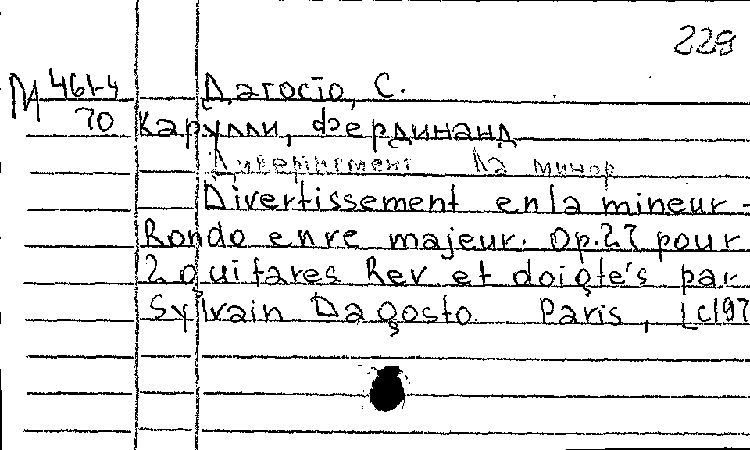 229
М 461-4 Дагосто, С.
70 Карулли, Фердинанд
Дивертисмент Ла минор
Divertissement en la mineur -
Rondo en re majeur. Op. 27 pour
2 guitares Rev et doigtés par
Sylvain Dagosto Paris, [c197